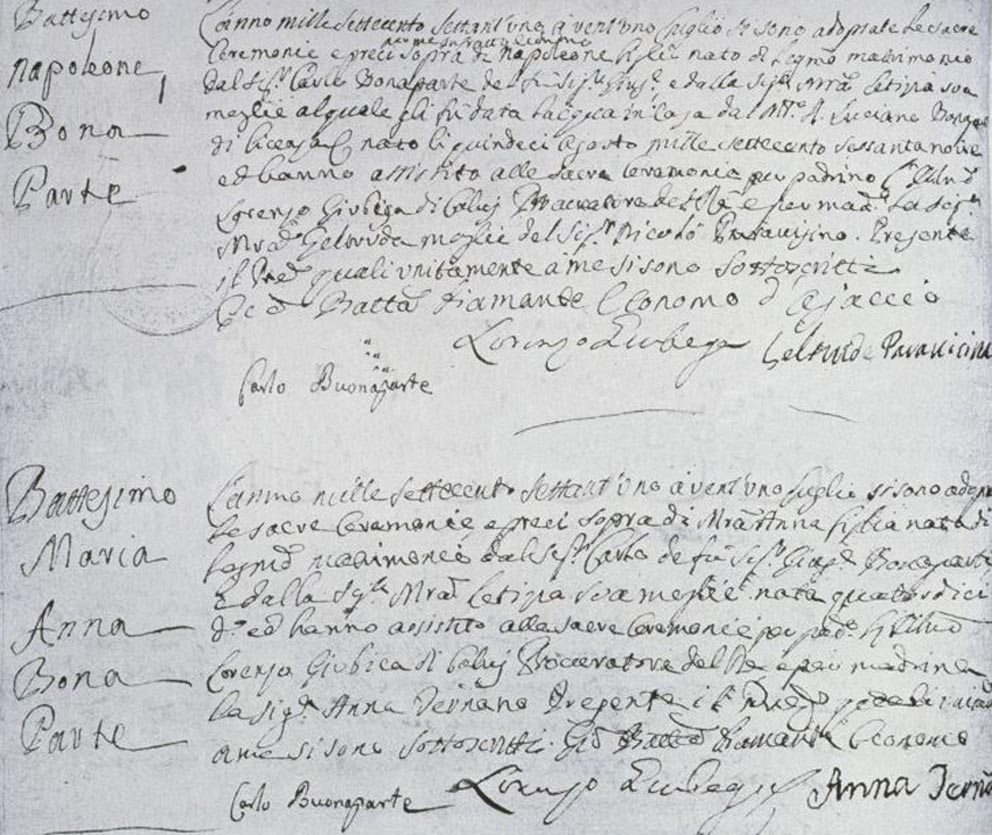 Battesimo
Napoleone
Bona
Parte
L'anno mille settecento settant'uno a vent'uno luglio si sono adoprate le sacre
Ceremonie e preci sopra di Napoleone figlio nato di legmo matrimonio
dal Sigr Carlo Bonaparte del fu Sigr e dalla Siga Letizia sua
moglie al quale gli fu data l'acqua in casa dal Luciano
di licenza e nato li quindeci agosto mille settecento sessanta nove
ed hanno assistito alle sacre Ceremonie per padrino
Lorenzo Giubega di Calvj Procuratore del Re e per la
Geltruda moglie del Sigr Nicolò Paravisino. Presente
il Pred quali unitamente a me si sono sottoscritti
Batta Diamante Economo d'Ajaccio
Lorenzo Giubega Geltrude Paravicini
Carlo Buonaparte
Battesimo
Maria
Anna
Bona
Parte
L'anno mille settecento settant'uno a vent'uno luglio si sono
le sacre Ceremonie e preci sopra di Mra Anna figlia nata di
matrimonio dal Sigr Carlo del fu Sigr Bonaparte
e dalla Siga Mra Letizia sua moglie nata quatordici
ed hanno assistito alle sacre Ceremonie per
Lorenzo Giubica di Calvj Proccuratore del Re e per madrina
la Siga Anna Presente il
a me si sono sottoscritti. Gio Batta Diamante Economo
Carlo Buonaparte Lorenzo Giubega Anna